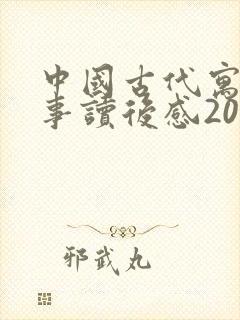 中國古代寓
事讀後感20
邪武丸